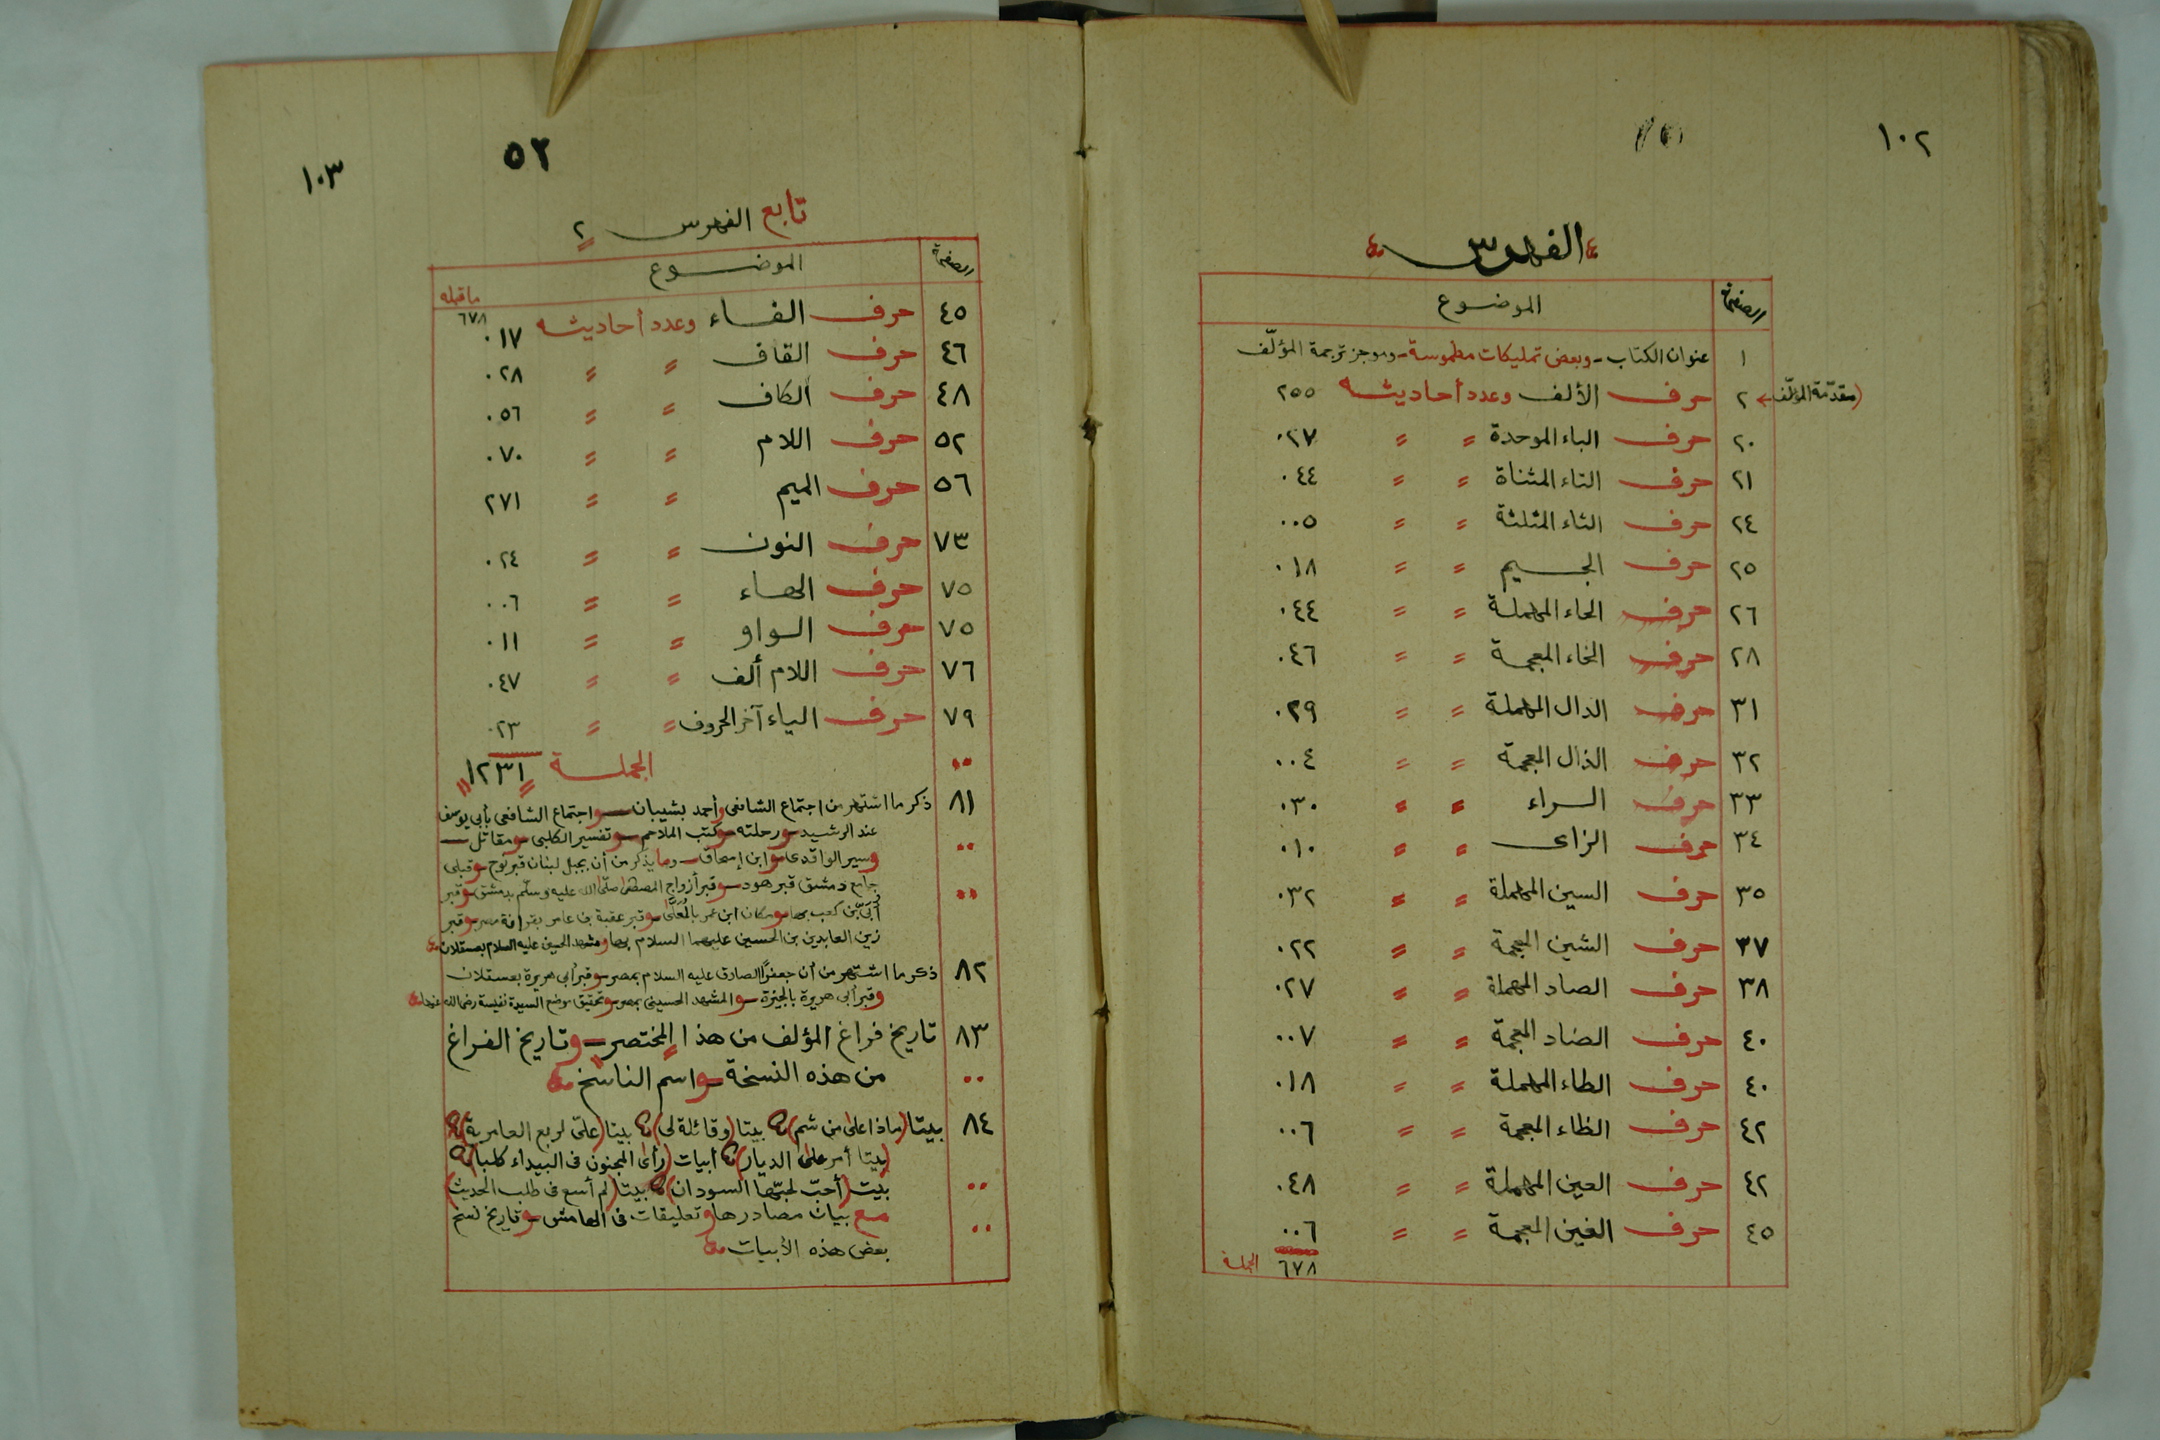 ١٠٢
الفهرس
الصفحة الموضوع
١ عنوان الكتاب - وبعض تمليكات مطموسة - وموجز ترجمة المؤلّف
(مقدّمة المؤلّف ← ٢ حرف الألف وعدد أحاديثه ٢٥٥
٢٠ حرف الباء الموحدة 〃 〃 ٠٢٧
٢١ حرف التاء المثناة 〃 〃 ٠٤٤
٢٤ حرف الثاء المثلثة 〃 〃 ٠٠٥
٢٥ حرف الجيم 〃 〃 ٠١٨
٢٦ حرف الحاء المهملة 〃 〃 ٠٤٤
٢٨ حرف الخاء المعجمة 〃 〃 ٠٤٦
٣١ حرف الدال المهملة 〃 〃 ٠٢٩
٣٢ حرف الذال المعجمة 〃 〃 ٠٠٤
٣٣ حرف الراء 〃 〃 ٠٣٠
٣٤ حرف الزاى 〃 〃 ٠١٠
٣٥ حرف السين المهملة 〃 〃 ٠٣٢
٣٧ حرف الشين المعجمة 〃 〃 ٠٢٢
٣٨ حرف الصاد المهملة 〃 〃 ٠٢٧
٤٠ حرف الضاد المعجمة 〃 〃 ٠٠٧
٤٠ حرف الطاء المهملة 〃 〃 ٠١٨
٤٢ حرف الظاء المعجمة 〃 〃 ٠٠٦
٤٢ حرف العين المهملة 〃 〃 ٠٤٨
٤٥ حرف الغين المعجمة 〃 〃 ٠٠٦
٦٧٨ الجملة
٥٢
١٠٣
تابع الفهرس ٢
الصفحة الموضوع
ماقبله ٦٧٨
٤٥ حرف الفاء وعدد أحاديثه ٠١٧
٤٦ حرف القاف 〃 〃 ٠٢٨
٤٨ حرف الكاف 〃 〃 ٠٥٦
٥٢ حرف اللام 〃 〃 ٠٧٠
٥٦ حرف الميم 〃 〃 ٢٧١
٧٣ حرف النون 〃 〃 ٠٢٤
٧٥ حرف الهاء 〃 〃 ٠٠٦
٧٥ حرف الواو 〃 〃 ٠١١
٧٦ حرف اللام ألف 〃 〃 ٠٤٧
٧٩ حرف الياء آخر الحروف 〃 〃 ٠٢٣
٠٠ الجملة ١٢٣١
٨١ ذكر ما اشتهر من اجتماع الشافعى وأحمد بشيبان - واجتماع الشافعى بأبي يوسف
عند الرشيد - ورحلته - وكتب الملاحم - وتفسير الكلبى - ومقاتل -
٠٠ وسير الواقدى وابن إسحاق - وما يذكر من أن بجبل لبنان قبر نوح - وقبلى
٠٠ جامع دمشق قبر هود - وقبر أزواج المصطفى صلّى الله عليه وسلّم بدمشق - وقبر
أُبَىّ بن كعب بها - ومكان ابن عمر بالمُعَلَّى - وقبر عقبة بن عامر بقرافة مصر - وقبر
زين العابدين بن الحسين عليهما السلام بها - ومشهد الحسين عليه السلام بعسقلان
٨٢ ذكر ما اشتهر من أن جعفرًا الصادق عليه السلام بمصر - وقبر أبى هريرة بعسقلان
وقبر أبى هريرة بالجيزة - والمشهد الحسينى بمصر - وتحقيق موضع السيدة نفيسة رضى الله عنها
٨٣ تاريخ فراغ المؤلف من هذا المختصر - وتاريخ الفراغ
٠٠ من هذه النسخة - واسم الناسخ
٨٤ بيتا (ماذا على من شم) بيتا (وقائلة لى) بيتا (علىّ لربع العامرية)
(بيتا أمر على الديار) أبيات (رأى المجنون فى البيداء كلبا)
٠٠ بيت (أحبّ لحبّها السودان) بيتا (لم أسع فى طلب الحديث)
٠٠ مع بيان مصادرها وتعليقات فى الهامش - وتاريخ نسخ
بعض هذه الأبيات